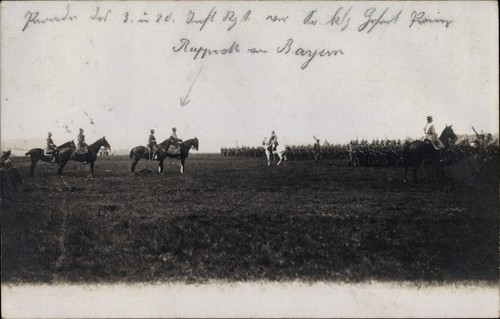 Parade des 3. u 20. Inft Rgt. vor Sr. kgl Hoheit Prinz
Rupprecht von Bayern